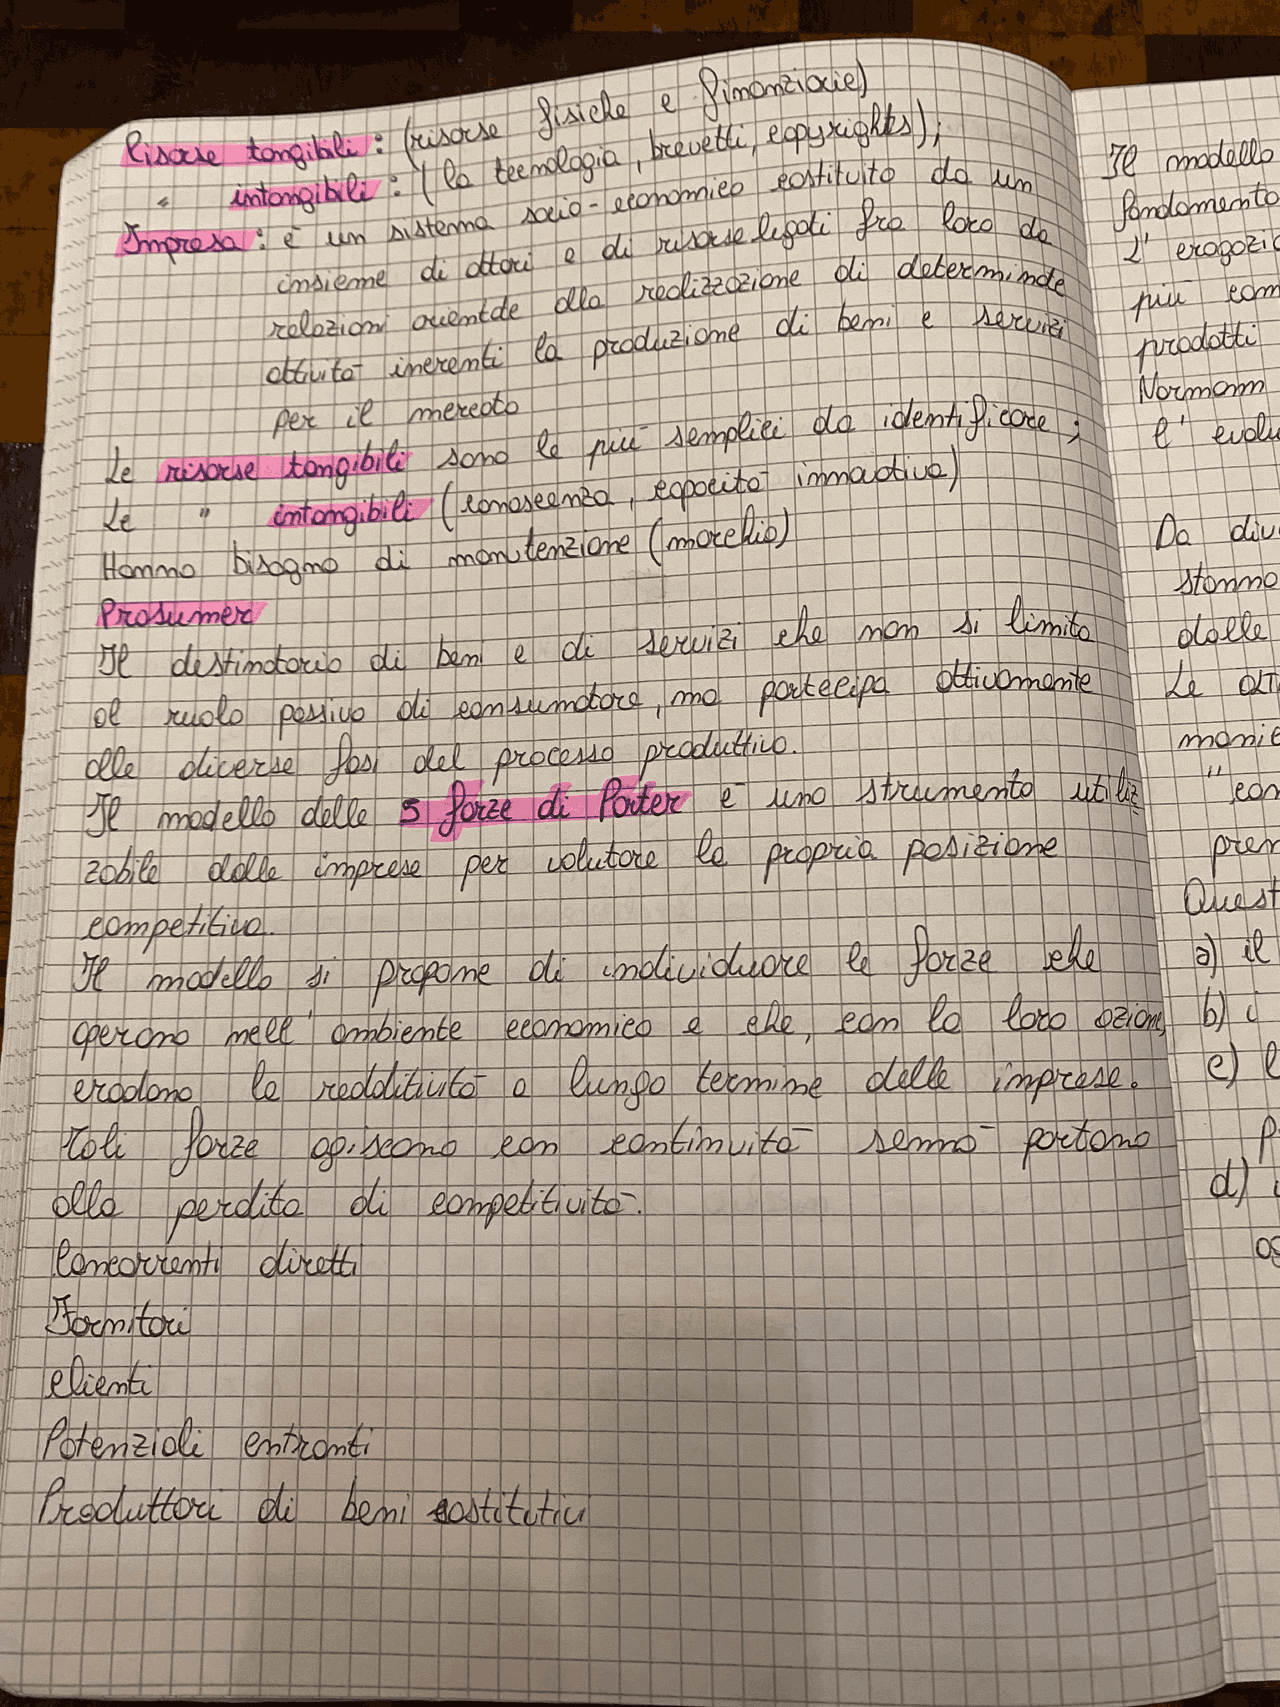 Risorse tangibili: (risorse fisiche e finanziarie)
" intangibili: (la tecnologia, brevetti, copyrights);
Impresa: è un sistema socio-economico costituito da un
insieme di attori e di risorse legati fra loro da
relazioni orientate alla realizzazione di determinate
attività inerenti la produzione di beni e servizi
per il mercato
Le risorse tangibili sono le più semplici da identificare;
Le " intangibili (conoscenza, capacità innovativa)
Hanno bisogno di manutenzione (marchio)
Prosumer
Il destinatario di beni e di servizi che non si limita
al ruolo passivo di consumatore, ma partecipa attivamente
alle diverse fasi del processo produttivo.
Il modello delle 5 forze di Porter è uno strumento utiliz
zabile dalle imprese per valutare la propria posizione
competitiva.
Il modello si propone di individuare le forze che
operano nell'ambiente economico e che, con la loro azione,
erodono la redditività a lungo termine delle imprese.
Tali forze agiscono con continuità sennò portano
alla perdita di competitività.
Concorrenti diretti
Fornitori
clienti
Potenziali entranti
Produttori di beni sostitutivi
Il modello
fondamento
L'erogazio
più com
prodotti
Normann
l'evolu
Da div
stanno
dalle
Le
manie
"con
prem
Quest
a) il
b) i
c) l
p
d) i